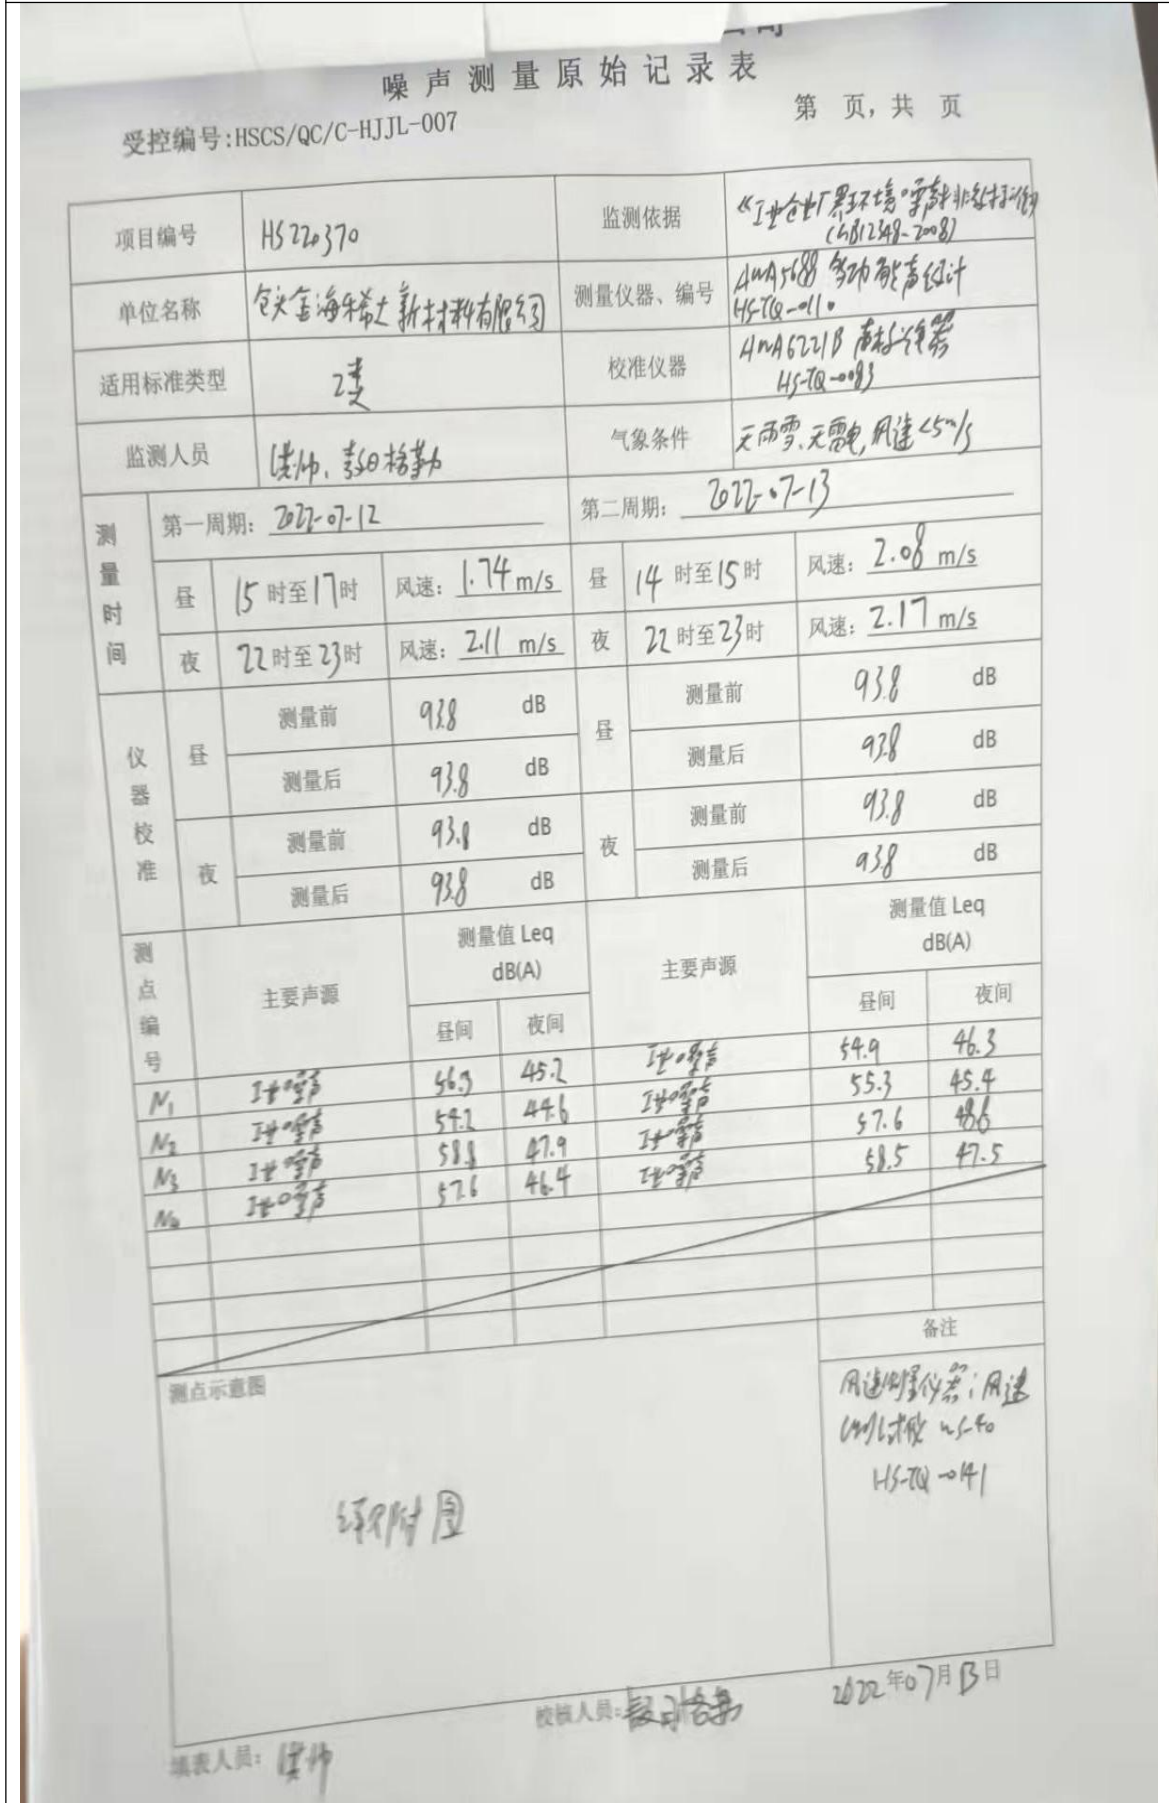 噪声测量原始记录表
受控编号:HSCS/QC/C-HJJL-007
第 页,共 页
项目编号 HS220370 监测依据 《工业企业厂界环境噪声排放标准》
(GB12348-2008)
单位名称 包头金海稀土新材料有限公司 测量仪器、编号 AWA5688 多功能声级计
HS-TQ-0110
适用标准类型 2类 校准仪器 AWA6221B 声校准器
HS-TQ-0083
监测人员 气象条件 无雨雪、无雷电,风速<5m/s
测量时间 第一周期: 2022-07-12 第二周期: 2022-07-13
昼 15时至17时 风速: 1.74 m/s 昼 14时至15时 风速: 2.08 m/s
夜 22时至23时 风速: 2.11 m/s 夜 22时至23时 风速: 2.17 m/s
仪器校准 昼 测量前 93.8 dB 昼 测量前 93.8 dB
测量后 93.8 dB 测量后 93.8 dB
夜 测量前 93.8 dB 夜 测量前 93.8 dB
测量后 93.8 dB 测量后 93.8 dB
测点编号 主要声源 测量值 Leq dB(A) 主要声源 测量值 Leq dB(A)
昼间 夜间 昼间 夜间
N1 工业噪声 56.3 45.2 工业噪声 54.9 46.3
N2 工业噪声 54.2 44.6 工业噪声 55.3 45.4
N3 工业噪声 58.8 47.9 工业噪声 57.6 48.6
N4 工业噪声 57.6 46.4 工业噪声 58.5 47.5
测点示意图 备注
详见附图
风速测量仪器:风速
HS-TQ-0141
校核人员: 2022年07月13日
填表人员: